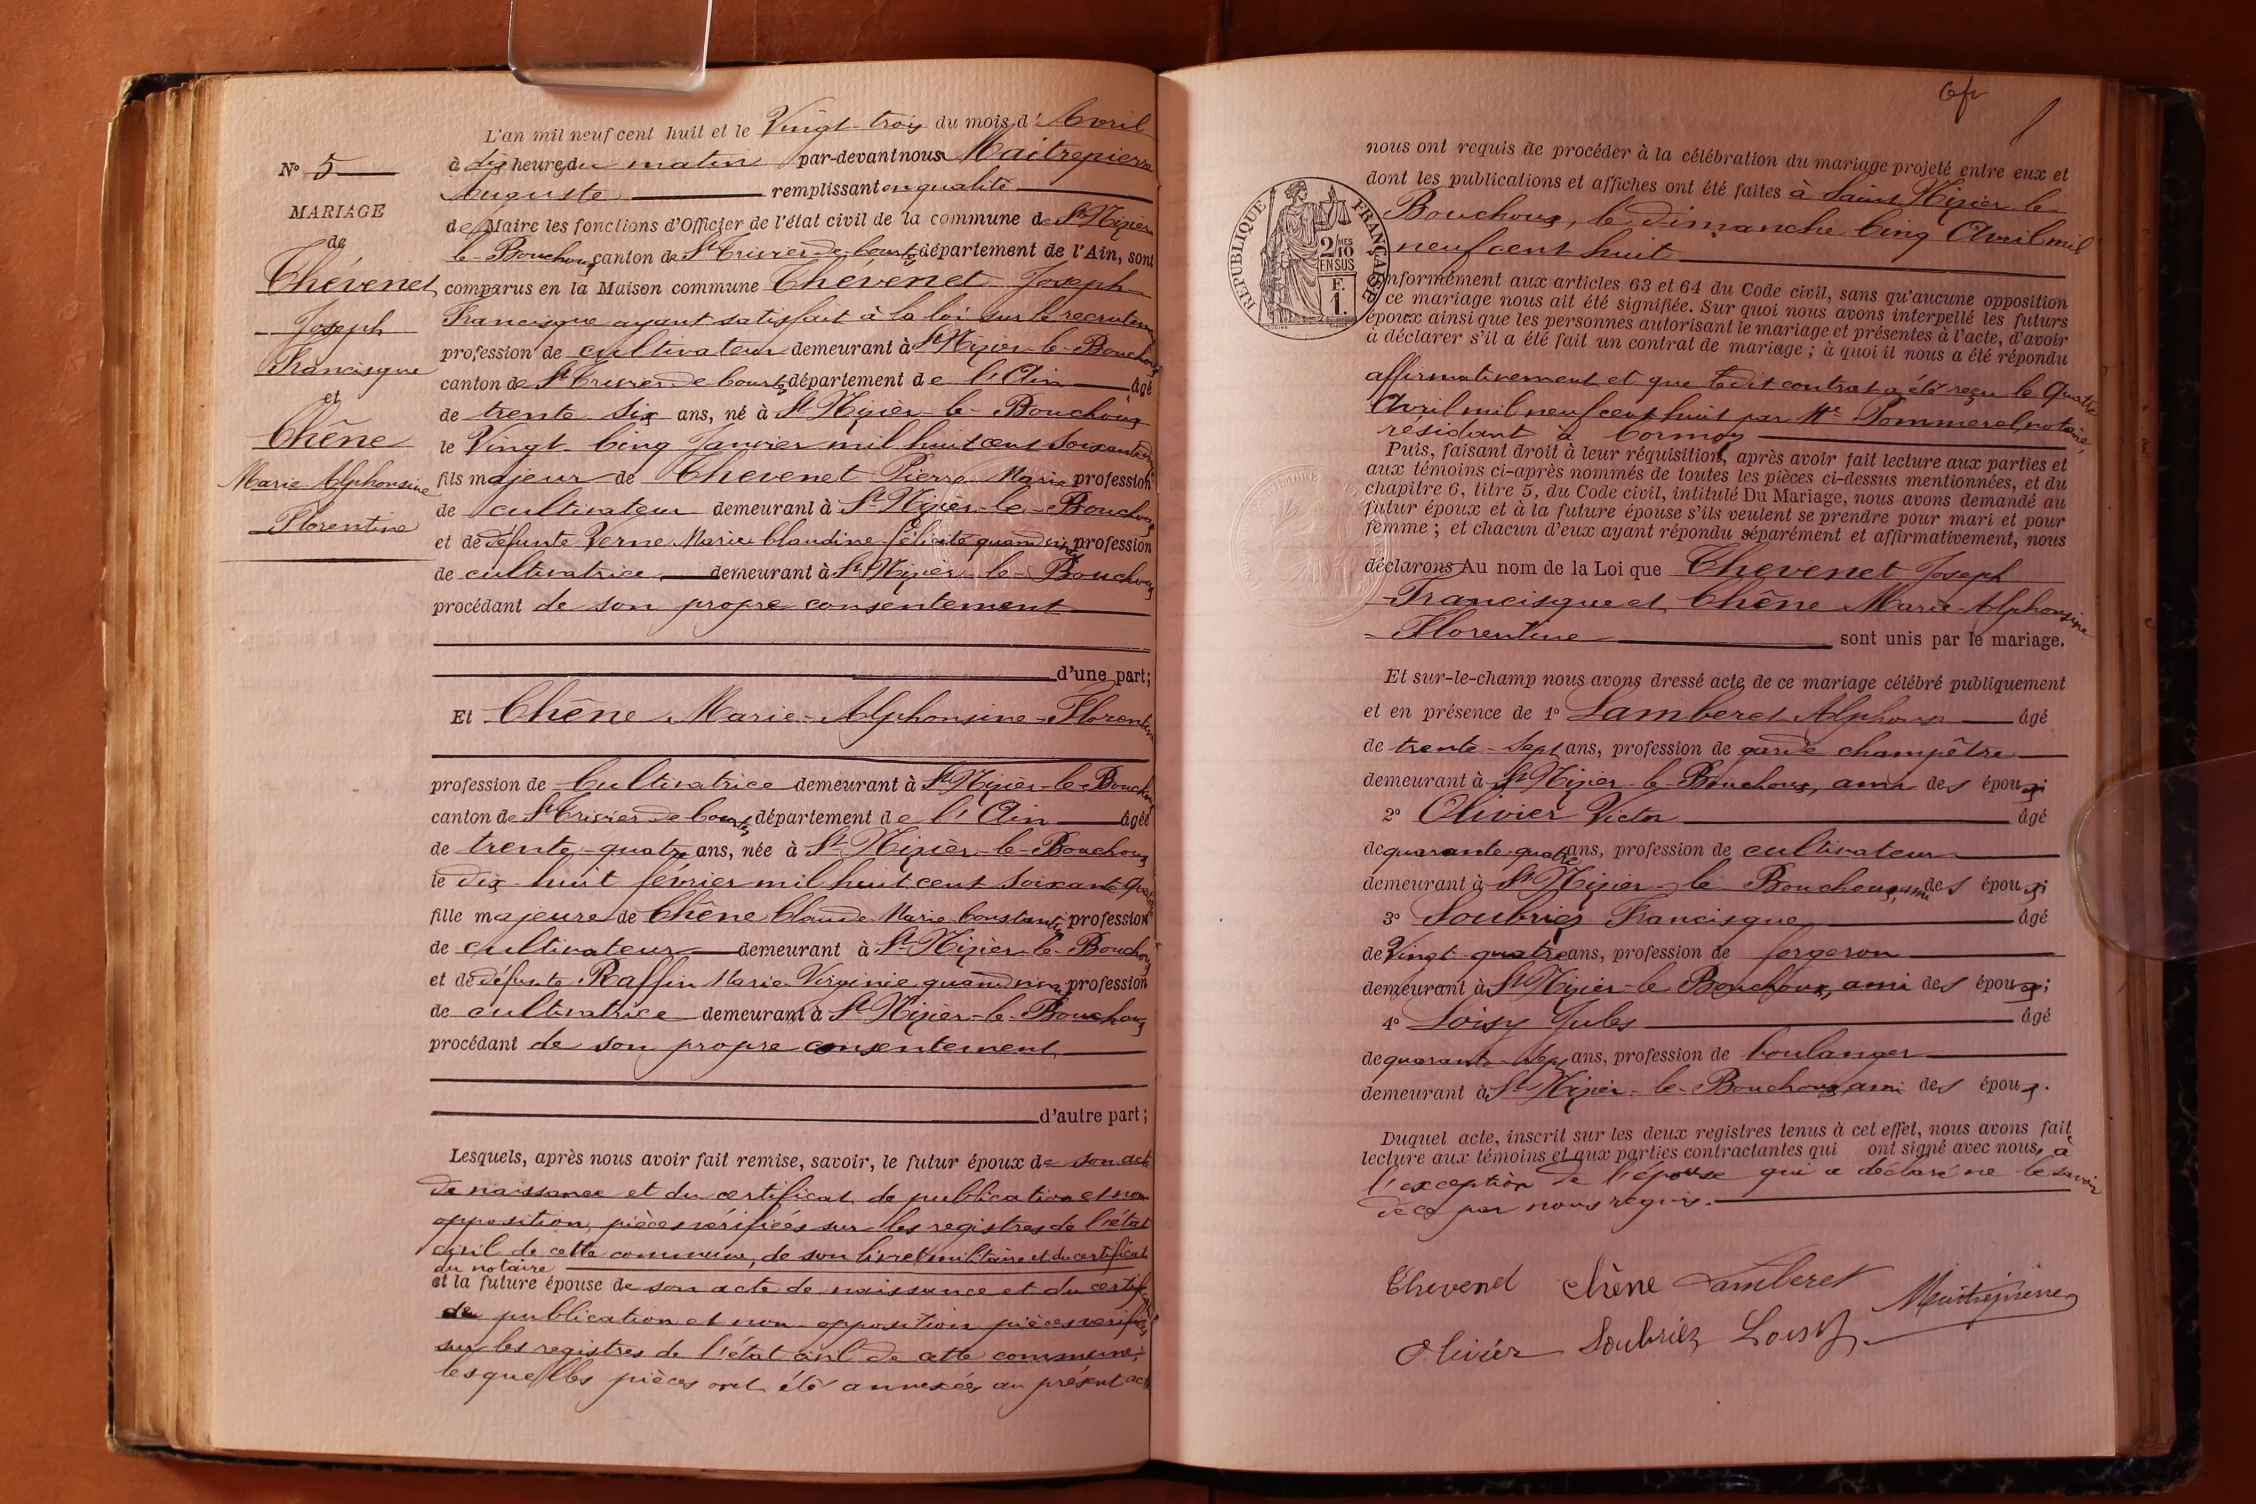 L'an mil neuf cent huit et le Vingt-trois du mois d'Avril
à dix heures du matin par-devant nous Maîtrepierre
Auguste remplissant en qualité
de Maire les fonctions d'Officier de l'état civil de la commune de St Nizier
le-Bouchoux canton de St Trivier de Courtes département de l'Ain, sont
comparus en la Maison commune Chévenet Joseph
Francisque ayant satisfait à la loi sur le recrutement
profession de cultivateur demeurant à St Nizier-le-Bouchoux
canton de St Trivier de Courtes département de l'Ain âgé
de trente six ans, né à St Nizier-le-Bouchoux
le Vingt Cinq Janvier mil huit cent soixante
fils majeur de Chevenet Pierre Marie profession
de cultivateur demeurant à St Nizier-le-Bouchoux
et de défunte Verne Marie Claudine Félicité quand vivait profession
de cultivatrice demeurant à St Nizier-le-Bouchoux
procédant de son propre consentement
d'une part;
Et Chêne Marie-Alphonsine-Florentine
profession de Cultivatrice demeurant à St Nizier-le-Bouchoux
canton de St Trivier de Courtes département de l'Ain âgée
de trente-quatre ans, née à St Nizier-le-Bouchoux
le dix-huit février mil huit cent soixante
fille majeure de Chêne Claude Marie Constantin profession
de cultivateur demeurant à St Nizier-le-Bouchoux
et de défunte Raffin Marie Virginie quand vivait profession
de cultivatrice demeurant à St Nizier-le-Bouchoux
procédant de son propre consentement
d'autre part;
Lesquels, après nous avoir fait remise, savoir, le futur époux de son acte
de naissance et du certificat de publication et non
opposition, pièces vérifiées sur les registres de l'état
civil de cette commune, de son livret militaire et du certificat
du notaire
et la future épouse de son acte de naissance et du certificat
de publication et non opposition pièces vérifiées
sur les registres de l'état civil de cette commune;
lesquelles pièces ont été annexées au présent acte
No 5
MARIAGE
de
Chévenet
Joseph
Francisque
et
Chêne
Marie Alphonsine
Florentine
nous ont requis de procéder à la célébration du mariage projeté entre eux et
dont les publications et affiches ont été faites à Saint Nizier le
Bouchoux, le dimanche Cinq Avril mil
neuf cent huit
REPUBLIQUE FRANÇAISE
2/10 EN SUS
F. 1.
conformément aux articles 63 et 64 du Code civil, sans qu'aucune opposition
à ce mariage nous ait été signifiée. Sur quoi nous avons interpellé les futurs
époux ainsi que les personnes autorisant le mariage et présentes à l'acte, d'avoir
à déclarer s'il a été fait un contrat de mariage; à quoi il nous a été répondu
affirmativement et que ledit contrat a été reçu le Quatre
Avril mil neuf cent huit par Me Pommerel, notaire,
résidant à Cormoz
Puis, faisant droit à leur réquisition, après avoir fait lecture aux parties et
aux témoins ci-après nommés de toutes les pièces ci-dessus mentionnées, et du
chapitre 6, titre 5, du Code civil, intitulé Du Mariage, nous avons demandé au
futur époux et à la future épouse s'ils veulent se prendre pour mari et pour
femme; et chacun d'eux ayant répondu séparément et affirmativement, nous
déclarons Au nom de la Loi que Chevenet Joseph
Francisque et Chêne Marie-Alphonsine
Florentine sont unis par le mariage.
Et sur-le-champ nous avons dressé acte de ce mariage célébré publiquement
et en présence de 1° Lamberet Alphonse âgé
de trente-sept ans, profession de garde champêtre
demeurant à St Nizier-le-Bouchoux, ami des époux;
2° Olivier Victor âgé
de quarante-quatre ans, profession de cultivateur
demeurant à St Nizier-le Bouchoux, ami des époux;
3° Soubriez Francisque âgé
de Vingt-quatre ans, profession de forgeron
demeurant à St Nizier-le Bouchoux, ami des époux;
4° Loisy Jules âgé
de quarante-sept ans, profession de boulanger
demeurant à St Nizier-le-Bouchoux ami des époux.
Duquel acte, inscrit sur les deux registres tenus à cet effet, nous avons fait
lecture aux témoins et aux parties contractantes qui ont signé avec nous, à
l'exception de l'épouse qui a déclaré ne le savoir
de ce par nous requis.
Chevenet Chêne Lamberet Maitrepierre
Olivier Soubriez Loisy